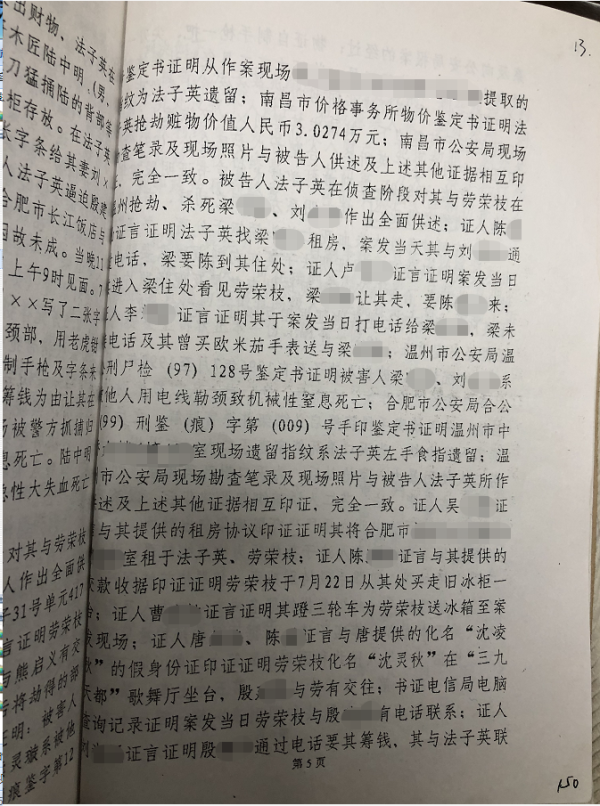 出财物、法子英在
木匠陆中明（男、
刀猛捅陆的背部等
柜存放。在法子英
长字条给其妻刘×
人法子英逼迫殷建
合肥市长江饭店与
因故未成。当晚11
上午9时见面。7
××写了二张字
颈部，用老虎钳
制手枪及字条未
筹钱为由让其在
场被警方抓捕归
息死亡。陆中明
急性大失血死亡
对其与劳荣枝
人作出全面供
31号单元417
言证明劳荣枝
与熊启义有交
将劫得的部
证明：被害人
灵璇系被他
痕鉴字第12
13.
鉴定书证明从作案现场 提取的
纹为法子英遗留；南昌市价格事务所物价鉴定书证明法
英抢劫赃物价值人民币3.0274万元；南昌市公安局现场
查笔录及现场照片与被告人供述及上述其他证据相互印
，完全一致。被告人法子英在侦查阶段对其与劳荣枝在
州抢劫、杀死梁 、刘 作出全面供述；证人陈
证言证明法子英找梁 租房，案发当天其与刘 通
电话，梁要陈到其住处；证人卢 证言证明案发当日
进入梁住处看见劳荣枝，梁 让其走，要陈 来；
人李 证言证明其于案发当日打电话给梁 ，梁未
电话及其曾买欧米茄手表送与梁 ；温州市公安局温
公刑尸检（97）128号鉴定书证明被害人梁 、刘 系
他人用电线勒颈致机械性窒息死亡；合肥市公安局合公
（99）刑鉴（痕）字第（009）号手印鉴定书证明温州市中
室现场遗留指纹系法子英左手食指遗留；温
市公安局现场勘查笔录及现场照片与被告人法子英所作
述及上述其他证据相互印证，完全一致。证人吴 证
与其提供的租房协议印证证明其将合肥市
室租于法子英、劳荣枝；证人陈 证言与其提供的
款收据印证证明劳荣枝于7月22日从其处买走旧冰柜一
台；证人曹 证言证明其蹬三轮车为劳荣枝送冰箱至案
发现场；证人唐 、陈 证言与唐提供的化名“沈凌
秋”的假身份证印证证明劳荣枝化名“沈灵秋”在“三九
天都”歌舞厅坐台，殷 与劳有交往；书证电信局电脑
查询记录证明案发当日劳荣枝与殷 有电话联系；证人
刘 证言证明殷 通过电话要其筹钱，其与法子英联
第5页
150